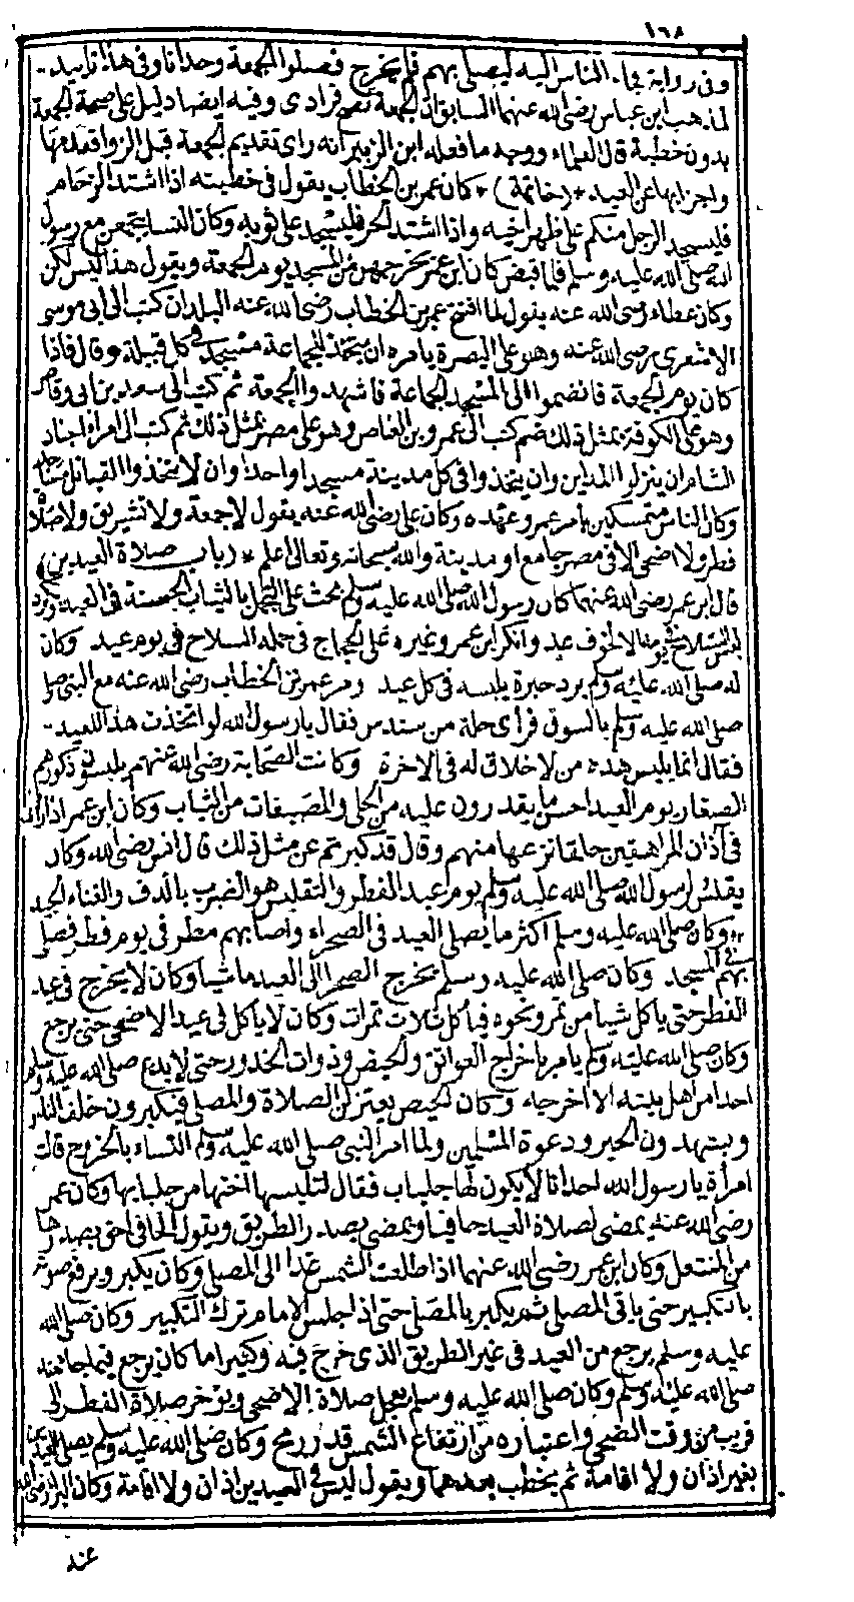 ١٦٨
وفى رواية فجاء الناس اليه ليصلى بهم فلم يخرج فصلوا الجمعة وحدانا وفى هذا تاييد
لمذهب ابن عباس رضى الله عنهما السابق ان الجمعة تصح فرادى وفيه ايضا دليل على صحة الجمعة
بدون خطبة قال العلماء ووجه ما فعله ابن الزبير انه راى تقديم الجمعة قبل الزوال فقدمها
واجزابها عن العيد * (خاتمة) * كان عمر بن الخطاب يقول فى خطبته اذا اشتد الزحام
فليسجد الرجل منكم على ظهر اخيه واذا اشتد الحر فليسجد على ثوبه وكان النسا يجتمعن مع رسول
الله صلى الله عليه وسلم فلما قبض كان ابن عمر يخرجهن من المسجد يوم الجمعة ويقول هذا ليس لكن
وكان عطاء رضى الله عنه يقول لما افتتح عمر بن الخطاب رضى الله عنه البلدان كتب الى ابى موسى
الاشعرى رضى الله عنه وهو على البصرة يامره ان يتخذ للجماعة مسجدا وفى كل قبيلة وقال فاذا
كان يوم الجمعة فانضموا الى المسجد الجماعة فاشهدوا الجمعة ثم كتب الى سعد بن ابى وقاص
وهو على الكوفة بمثل ذلك ثم كتب الى عمرو بن العاص وهو على مصر بمثل ذلك ثم كتب الى امراء اجناد
الشام ان ينزلوا المداين وان يتخذوا فى كل مدينة مسجدا واحدا وان لا يتخذوا القبائل مساجد
وكان الناس متمسكين بامر عمر وعهده وكان على رضى الله عنه يقول لا جمعة ولا تشريق ولا صلاة
فطر ولا اضحى الا فى مصر جامع او مدينة والله سبحانه وتعالى اعلم * (باب صلاة العيدين)
قال ابن عمر رضى الله عنهما كان رسول الله صلى الله عليه وسلم يحث على التجمل بالثياب الحسنة فى العيد ويكره
لبس السلاح فى يومنا الا لخوف عدو وانكر ابن عمر وغيره على الحجاج فى حمله السلاح فى يوم عيد وكان
له صلى الله عليه وسلم برد حبرة يلبسه فى كل عيد ومر عمر بن الخطاب رضى الله عنه مع النبى صلى
صلى الله عليه وسلم بالسوق فراى حلة من سندس فقال يا رسول الله لو اتخذت هذا للعيد
فقال انما يلبس هذه من لا خلاق له فى الاخرة وكانت الصحابة رضى الله عنهم يلبسون ذكورهم
الصغار يوم العيد احسن ما يقدرون عليه من الحلى والمصبغات من الثياب وكان ابن عمر اذا راى
فى آذان المراهقين حلقا نزعها منهم وقال قد كبرتم عن مثل ذلك قال انس رضى الله وكان
يقلس لرسول الله صلى الله عليه وسلم يوم عيد الفطر والتقليس هو الضرب بالدف والغناء الجيد
وكان صلى الله عليه وسلم اكثر ما يصلى العيد فى الصحراء واصابهم مطر فى يوم فطر فصلى
بهم فى المسجد وكان صلى الله عليه وسلم يخرج الصحرا الى العيد ماشيا وكان لا يخرج فى عيد
الفطر حتى ياكل شيا من تمر ونحوه فياكل ثلاث تمرات وكان لا ياكل فى عيد الاضحى حتى يرجع
وكان صلى الله عليه وسلم يامر باخراج العواتق والحيض وذوات الخدور حتى لا يدع صلى الله عليه وسلم
احدا من اهل بيته الا اخرجه وكان الحيض يعتزلن الصلاة والمصلى فيكبرون خلف الناس
ويشهدون الخير ودعوة المسلمين ولما امر النبى صلى الله عليه وسلم النساء بالخروج قالت
امرأة يا رسول الله احدانا لا يكون لها جلباب فقال لتلبسها اختها من جلبابها وكان عمر
رضى الله عنه يمضى لصلاة العيد حافيا ويمضى بصدر الطريق ويقول الحافى احق بصدرها
من المنتعل وكان ابن عمر رضى الله عنهما اذا طلعت الشمس غدا الى المصلى وكان يكبر ويرفع صوته
بالتكبير حتى ياتى المصلى ثم يكبر بالمصلى حتى اذا جلس الامام ترك التكبير وكان صلى الله
عليه وسلم يرجع من العيد فى غير الطريق الذى خرج فيه وكثيرا ما كان يرجع فيما جا منه
صلى الله عليه وسلم وكان صلى الله عليه وسلم يعجل صلاة الاضحى ويؤخر صلاة الفطر الى
قريب من وقت الضحى واعتباره من ارتفاع الشمس قدر رمح وكان صلى الله عليه وسلم يصلى العيدين
بغير اذان ولا اقامة ثم يخطب بعدهما ويقول ليس فى العيدين اذان ولا اقامة وكان البرا رضى الله
عنه